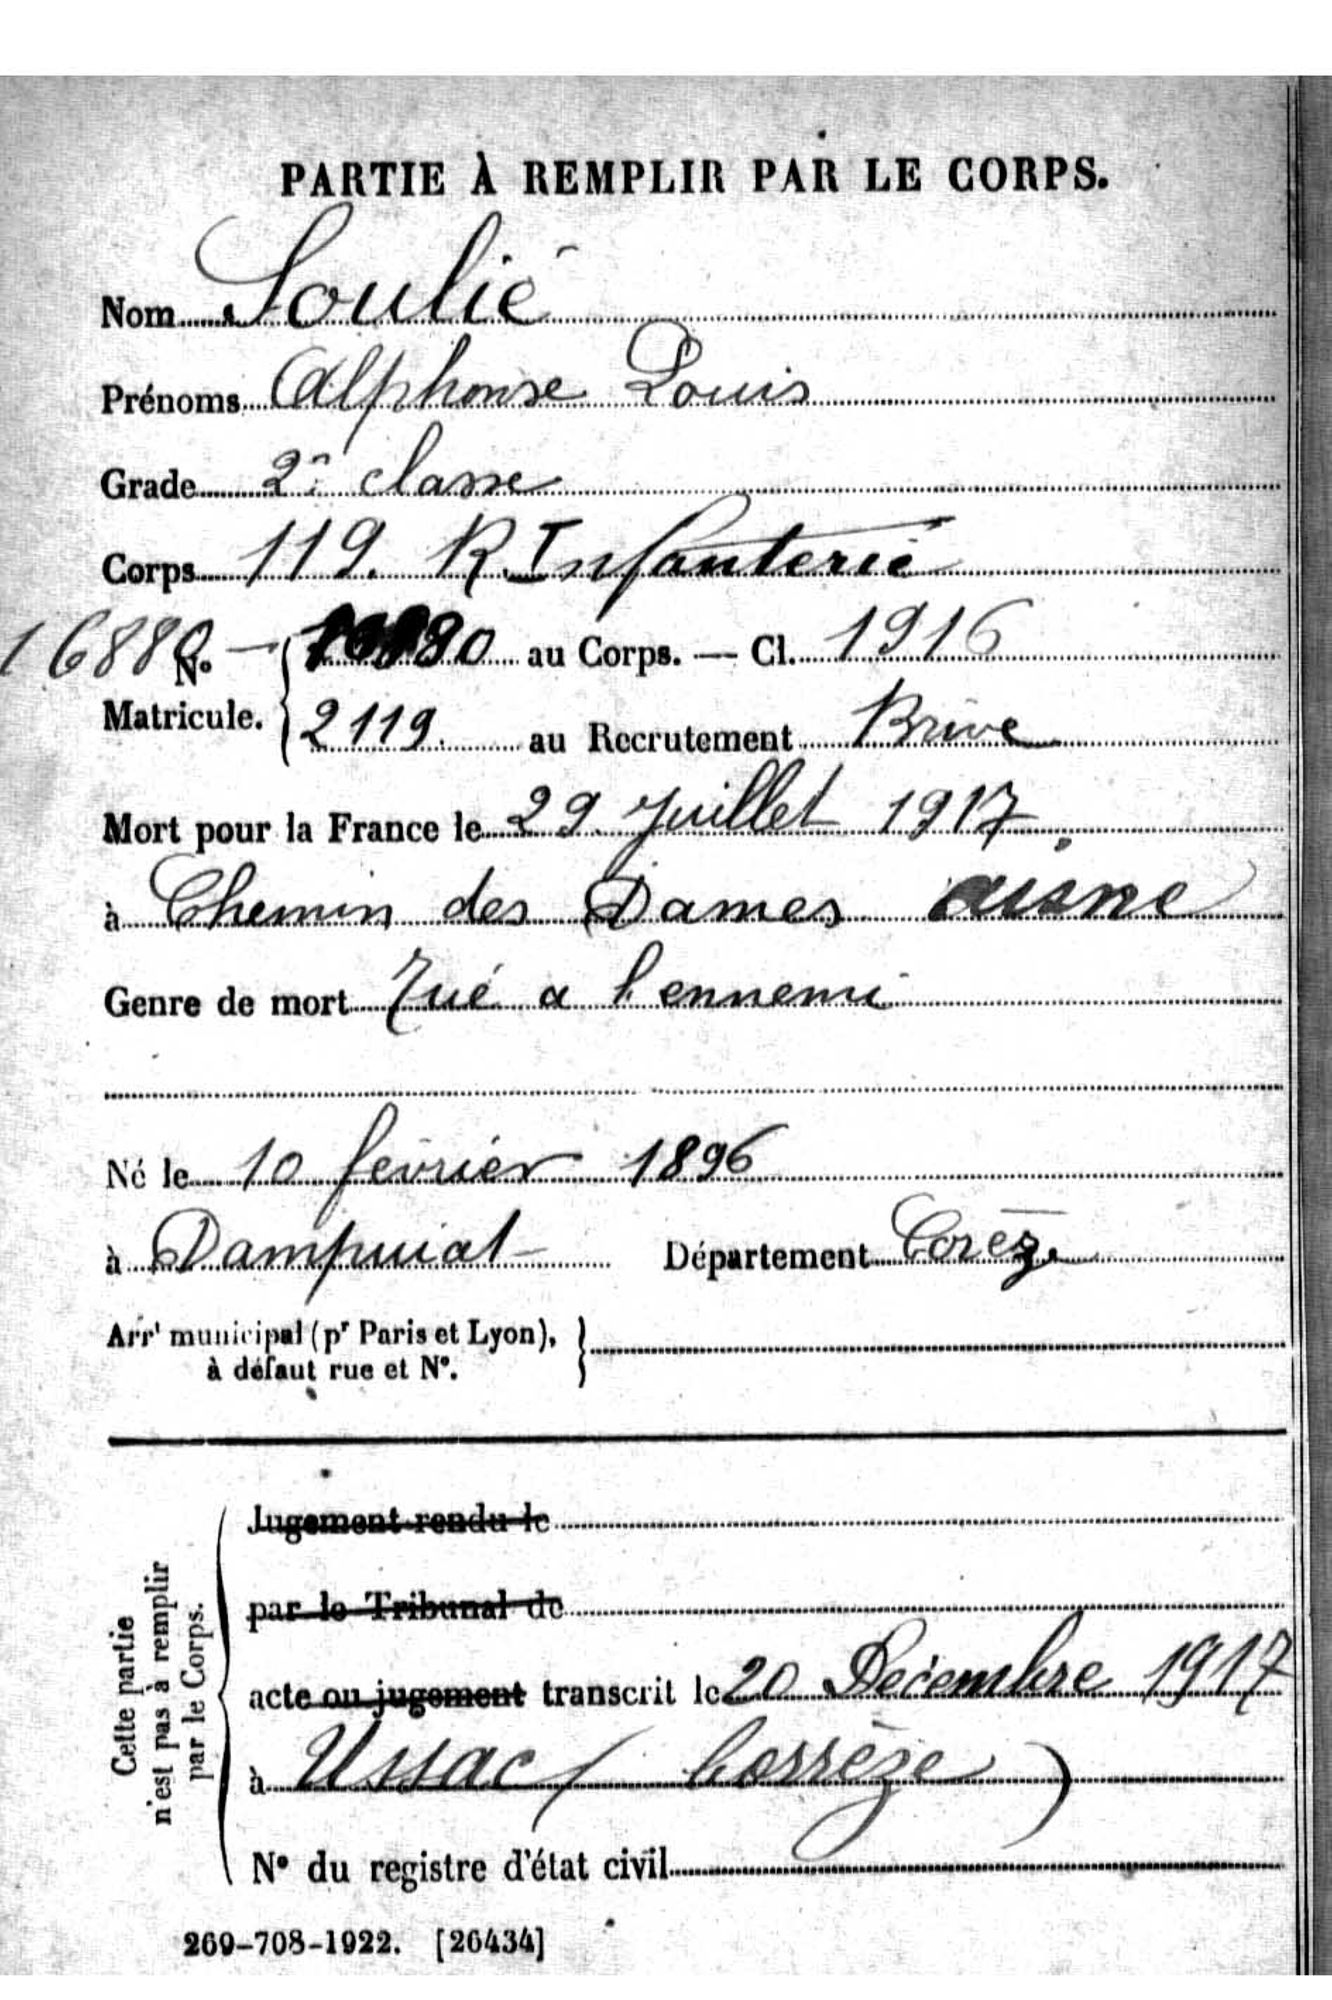 PARTIE À REMPLIR PAR LE CORPS.
Nom Soulié
Prénoms Alphonse Louis
Grade 2e classe
Corps 119. R. Infanterie
16880 —
N° au Corps. — Cl. 1916
Matricule. 2119. au Recrutement Brive
Mort pour la France le 29 Juillet 1917
à Chemin des Dames aisne
Genre de mort Tué a l'ennemi
Né le 10 février 1896
à Dampniat Département Corèz.
Arrt municipal (pr Paris et Lyon),
à défaut rue et N°.
Cette partie
n'est pas à remplir
par le Corps.
Jugement rendu le
par le Tribunal de
acte ou jugement transcrit le 20 Décembre 1917
à Ussac ( Corrèze )
N° du registre d'état civil
269-708-1922. [26434]